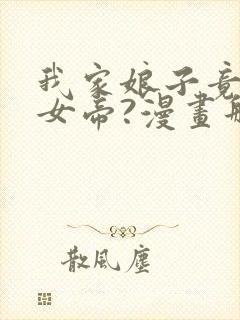 我家娘子竟
女帝?漫畫
散風塵